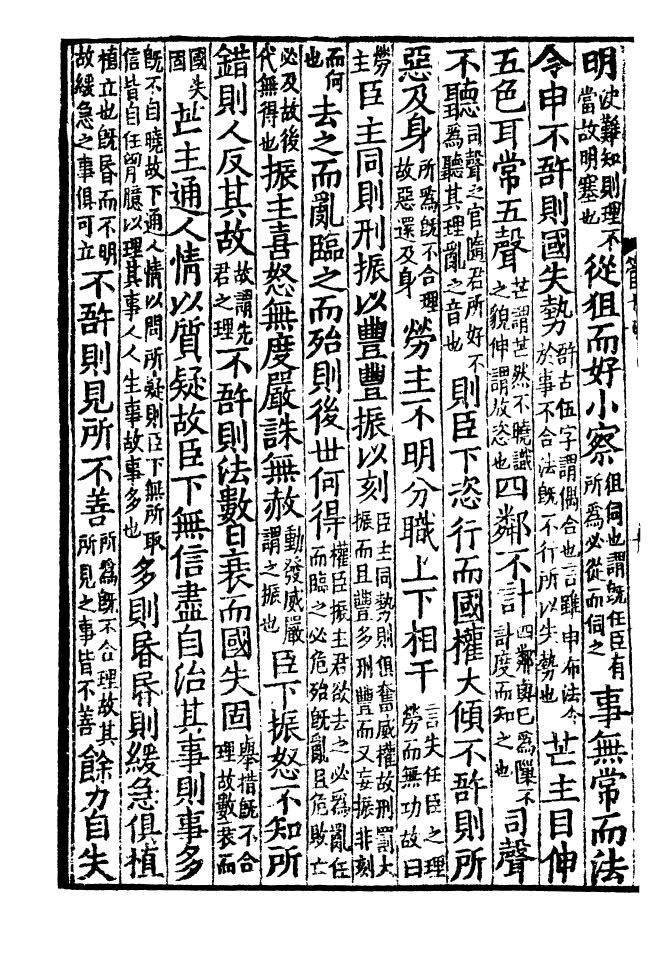 明決難知則理不當故明塞也從狙而好小察狙伺也謂旣任臣有所爲必從而伺之事無常而法
令申不𧦝則國失勢𧦝古伍字謂偶合也言雖申布法令於事不合法旣不行所以失勢也芒主目伸
五色耳常五聲芒謂芒然不曉識之貌伸謂放恣也四鄰不計四鄰與己爲隟不計度而知之也司聲
不聽司聲之官隨君所好不爲聽其理亂之音也則臣下恣行而國權大傾不𧦝則所
惡及身所爲旣不合理故惡還及身勞主不明分職上下相干言失任臣之理勞而無功故曰
勞主臣主同則刑振以豐豐振以刻臣主同勢則俱奮威權故刑罰太振而且豐多刑豐而又妄振非刻
而何也去之而亂臨之而殆則後世何得權臣振主君欲去之必爲亂任而臨之必危殆旣亂且危敗亡
必及故後代無得也振主喜怒無度嚴誅無赦動發威嚴謂之振也臣下振怒不知所
錯則人反其故故謂先君之理不𧦝則法數日衰而國失固舉措旣不合理故數衰而
國失固芒主通人情以質疑故臣下無信盡自治其事則事多
旣不自曉故下通人情以問所疑則臣下無所取信皆自任胷臆以理其事人人生事故事多也多則昬昬則緩急俱植
植立也旣昬而不明故緩急之事俱可立不𧦝則見所不善所爲旣不合理故其所見之事皆不善餘力自失